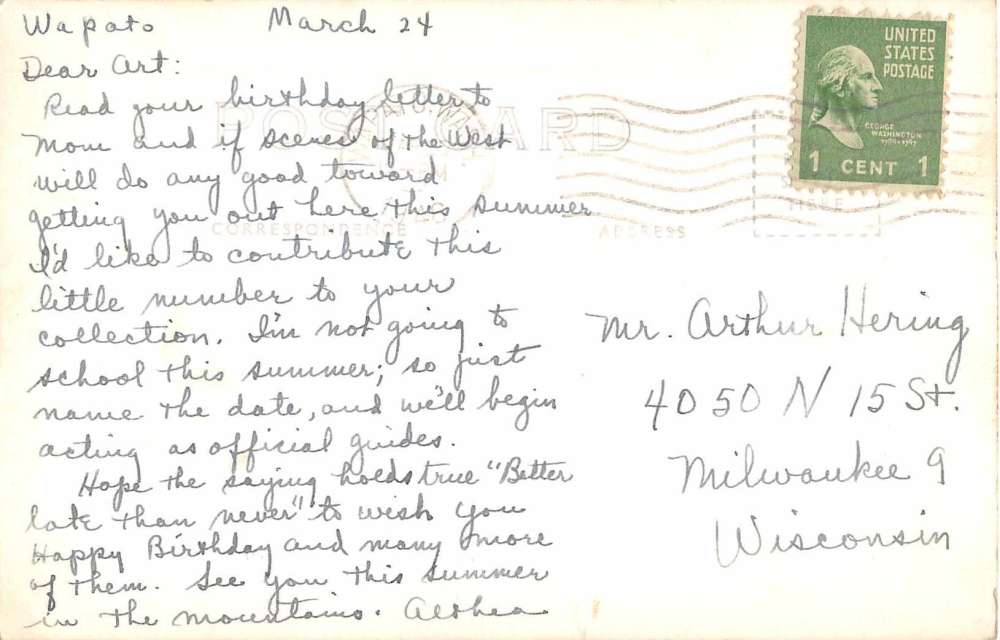 Wapato March 24
Dear Art:
Read your birthday letter to
Mom and if scenes of the West
will do any good toward
getting you out here this summer
I'd like to contribute this
little number to your
collection. I'm not going to
school this summer; so just
name the date, and we'll begin
acting as official guides.
Hope the saying holds true "Better
late than never" to wish you
Happy Birthday and many more
of them. See you this summer
in the mountains. Althea
POST CARD
CORRESPONDENCE
ADDRESS
HERE
UNITED
STATES
POSTAGE
GEORGE
WASHINGTON
1 CENT 1
Mr. Arthur Hering
4050 N 15 St.
Milwaukee 9
Wisconsin